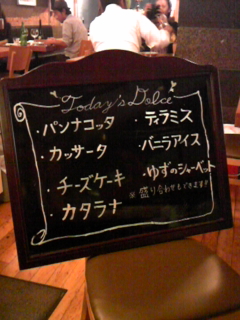 Today's Dolce
・パンナコッタ
・カッサータ
・チーズケーキ
・カタラナ
・ティラミス
・バニラアイス
・ゆずのシャーベット
※盛り合わせもできます!!